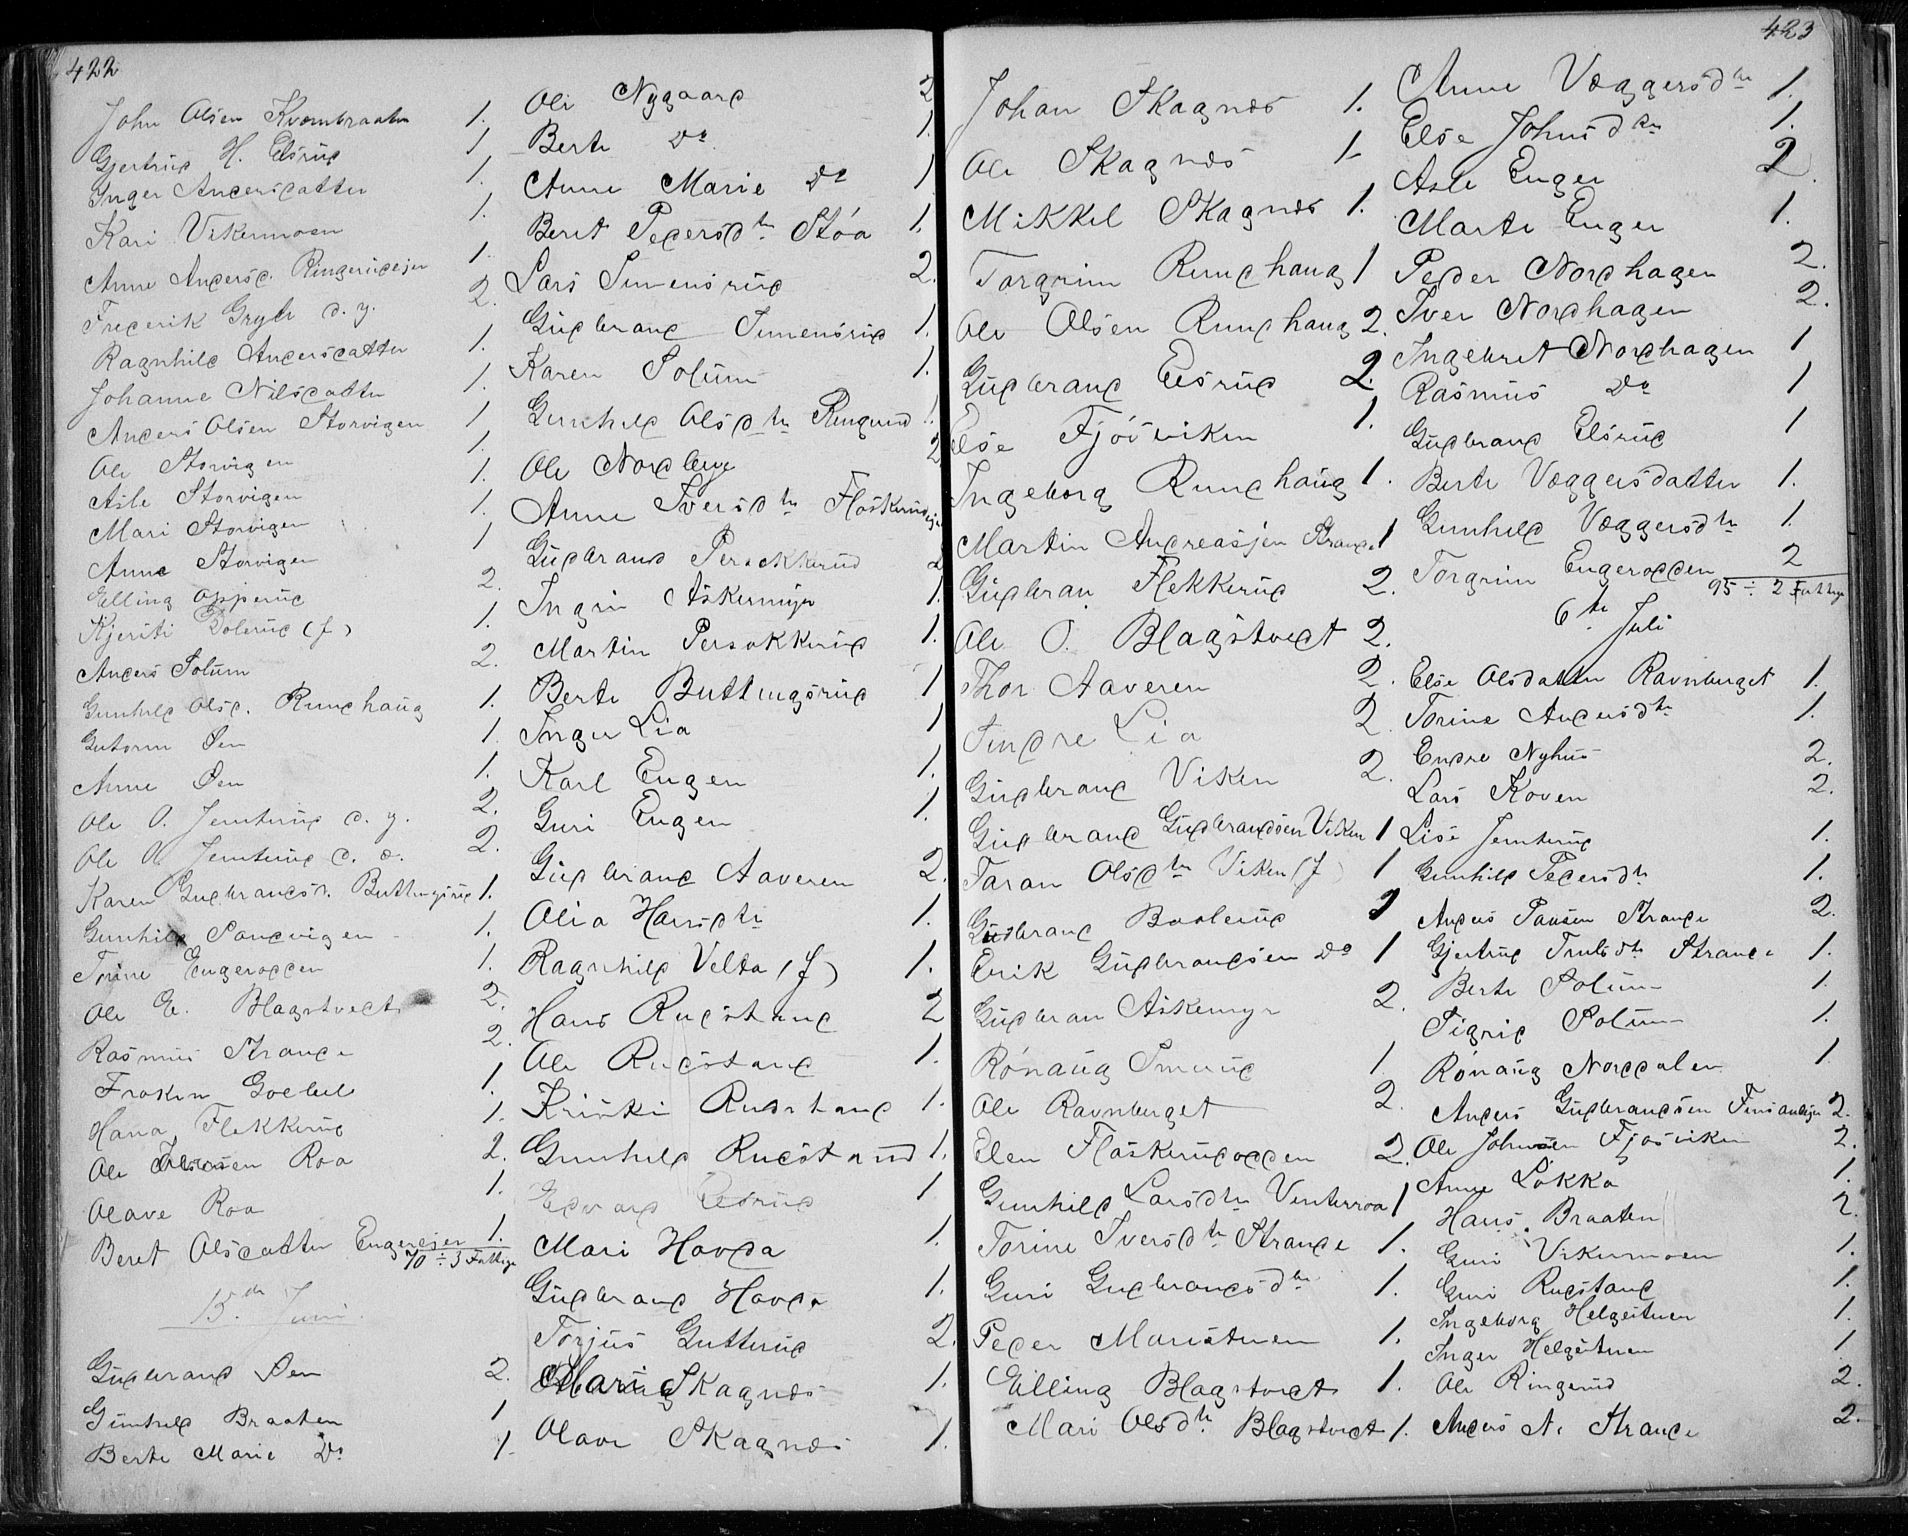 422
John Olsen Kvernbraaten 1.
Gjertrud H. Elsrud 1
Inger Andersdatter 1.
Kari Vikermoen 1.
Anne Andersd. Ringerudejer 1.
Frederik Gryte d. y. 2.
Ragnhild Andersdatter 1.
Johanne Nilsdatter 1.
Anders Olsen Storvigen 1
Ole Storvigen 1.
Asle Storvigen 1.
Mari Storvigen 1.
Anne Storvigen 1
Elling Opperud 2.
Kjersti Bolerud (f) 1.
Anders Solum 2.
Gunhild Olsd. Rundhaug 1.
Gutorm Øen 1.
Anne Øen 1.
Ole O. Jemterud d. y. 2.
Ole O. Jemterud d. æ. 2.
Karen Gudbrandsd. Buttingsrud 1.
Gunhild Sandvigen 1.
Torine Engerodden 1.
Ole E. Blagstvedt 2.
Rasmus Strande 2.
Frøken Goebel 1
Hana Flekkerud 1.
Ole Roa 2.
Olave Roa 1.
Beret Olsdatter Engereier 1.
70 ÷ 3 Fattige
15de Juni
Gudbrand Øen 2.
Gunhild Braaten 1
Berte Marie Do 1.
Ole Nygaard 2
Berte Do 1.
Anne Marie Do 1
Beret Pedersdtr Støa 1.
Lars Simensrud 2.
Gudbrand Simensrud 1.
Karen Solum 1.
Gunhild Olsdtr Ringerud 1.
Ole Nordbye 2
Anne Iversdtr Flaskerudejer
Gudbrand Persokkerud 2
Ingri Askemyr 1.
Martin Persokkerud 1.
Berte Buttingsrud 1
Inger Lia 1
Karl Engen 1.
Guri Engen 1.
Gudbrand Aaveren 2.
Olia Hansdtr 1.
Ragnhild Velta (f) 1.
Hans Rudstand 2
Ole Rudstand 1.
Kristi Rudstand 1.
Gunhild Rudstand 1.
Edvard Elsrud 1
Mari Hovda 1.
Gudbrand Hovda 1.
Torjus Gutterud 2.
Mari Skagnæs 1.
Olave Skagnæs 1.
423
Johan Skagnæs 1.
Ole Skagnæs 1
Mikkel Skagnæs 1.
Torgrim Rundhaug 1
Ole Olsen Rundhaug 2.
Gudbrand Elsrud 2.
Else Fjøsviken 1.
Ingeborg Rundhaug 1.
Martin Andreasjen Strande 1
Gudbran Flekkerud 2.
Ole O. Blagstvedt 2.
Thor Aaveren 2.
Sindre Lia 2
Gudbrand Viken 2.
Gudbrand Gudbrandsen Viken 1
Taran Olsdtr Viken (f) 1
Gudbrand Boslerud 2
Erik Gudbrandsen Do 1
Gudbran Askemyr 2.
Rønaug Smerud 1
Ole Ravnberget 2.
Elen Flaskerudodden 2.
Gunhild Larsdtr Venterroa 1
Torine Iversdtr Strande 1.
Guri Gudbrandsdtr 1.
Peder Maristuen 1.
Elling Blagstvedt 1.
Mari Olsdtr Blagstvedt 1.
Anne Væggersdtr 1.
Else Johnsdtr 1.
Asle Enger 2.
Marte Enger 1.
Peder Nordhagen 2.
Iver Nordhagen 2.
Ingebret Nordhagen 1
Rasmus Do 1
Gudbrand Elsrud 1
Berte Væggersdatter 1.
Gunhild Væggersdtr 1.
Torgrim Engerodden 2
95 ÷ 2 Fattige
6te Juli
Else Olsdatter Ravnberget 1.
Torine Andersdtr 1.
Endre Nyhus 2.
Lars Koven 2.
Lise Jemterud 1.
Gunhild Pedersdtr 1.
Anders Paulsen Strande 2.
Gjertrud Trulsdtr Strande 1.
Berte Solum 1.
Sigrid Solum 1.
Rønaug Norddalen 1
Anders Gudbrandsen 2.
Ole Johnsen Fjøsviken 2.
Anne Løkka 1.
Hans Braaten 2.
Guri Vikermoen 1.
Guri Rudstand 1.
Ingeborg Helgeituen 1.
Inger Helgeituen 1
Ole Ringerud 2.
Anders N. Strande 2.